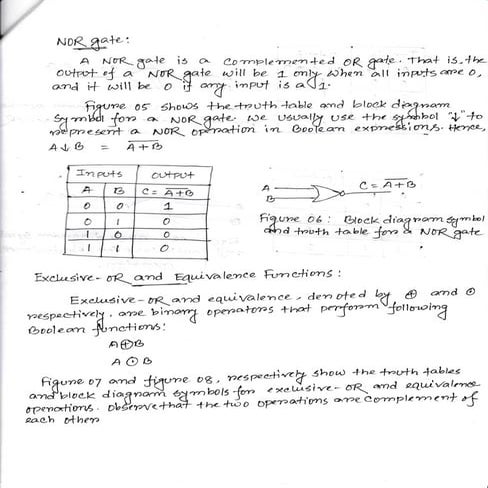 NOR gate:
A NOR gate is a complemented OR gate. That is. the
output of a NOR gate will be 1 only when all inputs are 0,
and it will be 0 if any input is a 1.
Figure 05 shows the truth table and block diagram
symbol for a NOR gate. We usually use the symbol "↓" to
represent a NOR operation in Boolean expressions. Hence,
A↓B = \overline{A+B}
Inputs output
A B C = \overline{A+B}
0 0 1
0 1 0
1 0 0
1 1 0
A
B
C = \overline{A+B}
Figure 06: Block diagram symbol
and truth table for a NOR gate
Exclusive-OR and Equivalence Functions:
Exclusive-OR and equivalence, denoted by ⊕ and ⊙
respectively, are binary operators that perform following
Boolean functions:
A⊕B
A⊙B
Figure 07 and figure 08, respectively show the truth tables
and block diagram symbols for exclusive-OR and equivalence
operations. Observe that the two operations are complement of
each other